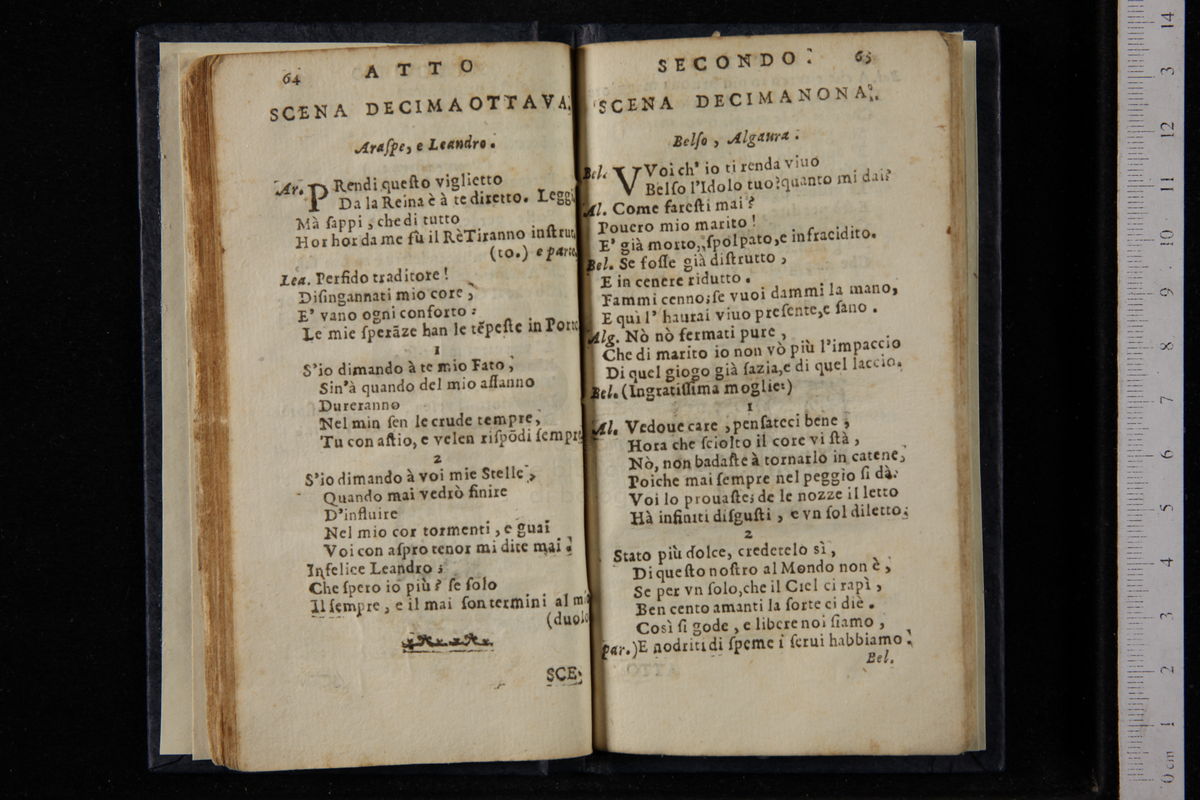 64
ATTO
SCENA DECIMAOTTAVA.
Araſpe, e Leandro.
Ar. PRendi queſto viglietto
Da la Reina è à te diretto. Leggi
Mà ſappi, che di tutto
Hor hor da me fù il Rè Tiranno inſtrut
(to.) e parte
Lea. Perfido traditore!
Diſingannati mio core,
E' vano ogni conforto:
Le mie ſperāze han le tēpeſte in Porto
1
S'io dimando à te mio Fato,
Sin'à quando del mio aſſanno
Dureranno
Nel min ſen le crude tempre,
Tu con aſtio, e velen riſpōdi ſempre
2
S'io dimando à voi mie Stelle,
Quando mai vedrò finire
D'influire
Nel mio cor tormenti, e guai
Voi con aſpro tenor mi dite mai.
Infelice Leandro;
Che ſpero io più? ſe ſolo
Il ſempre, e il mai ſon termini al mio
(duolo
SCE-
SECONDO.
65
SCENA DECIMANONA.
Belſo, Algaura.
Bel. VVoi ch' io ti renda viuo
Belſo l'Idolo tuo? quanto mi dai?
Al. Come fareſti mai?
Pouero mio marito!
E' già morto, ſpolpato, e infracidito.
Bel. Se foſſe già diſtrutto,
E in cenere ridutto.
Fammi cenno; ſe vuoi dammi la mano,
E quì l' haurai viuo preſente, e ſano.
Alg. Nò nò fermati pure,
Che di marito io non vò più l'impaccio
Di quel giogo già ſazia, e di quel laccio.
Bel. (Ingratiſſima moglie!)
1
Al. Vedoue care, penſateci bene,
Hora che ſciolto il core vi ſtà,
Nò, non badaſte à tornarlo in catene,
Poiche mai ſempre nel peggio ſi dà.
Voi lo prouaſte; de le nozze il letto
Hà infiniti diſguſti, e vn ſol diletto.
2
Stato più dolce, credetelo sì,
Di queſto noſtro al Mondo non è,
Se per vn ſolo, che il Ciel ci rapì,
Ben cento amanti la ſorte ci diè.
Così ſi gode, e libere noi ſiamo,
par.) E nodriti di ſpeme i ſerui habbiamo.
Bel.
14
3
12
11
10
9
8
7
6
5
4
3
2
1
0 cm